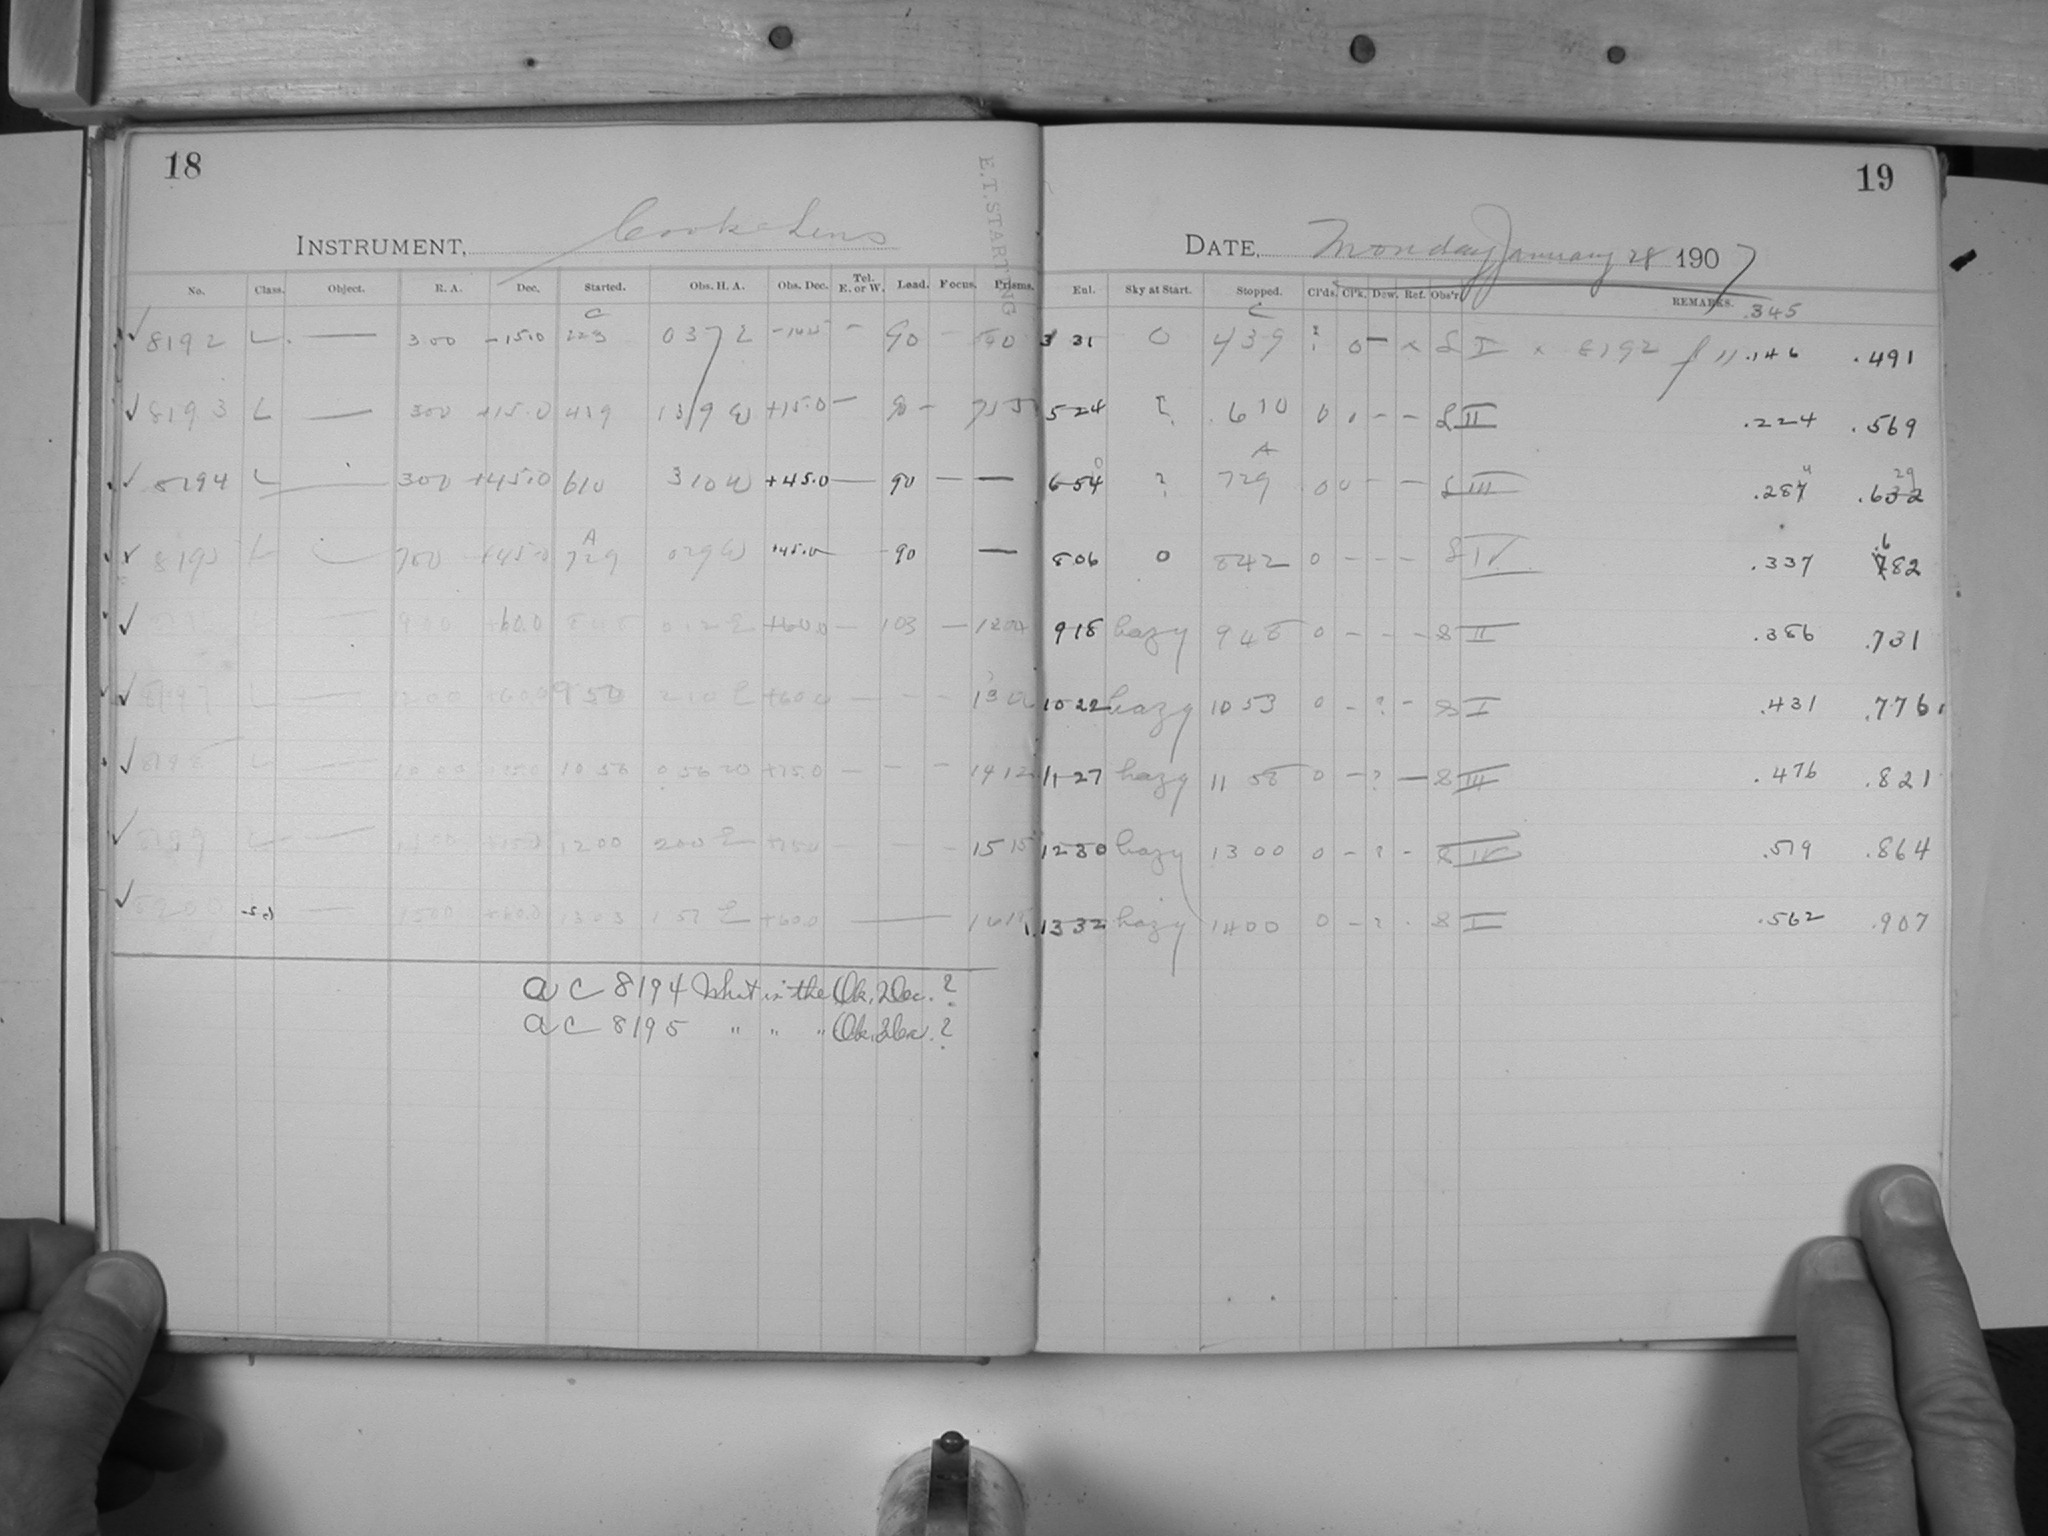 18
19
E.T.STARTING
INSTRUMENT, Cooke Lens
DATE, Monday January 28 1907
No. Class. Object. R. A. Dec. Started. Obs. H. A. Obs. Dec. Tel. E. or W. Load. Focus. Prisms. Eul. Sky at Start. Stopped. Cl'ds. Cl'k. Dew. Ref. Obs'r. REMARKS. .345
C C
✓ 8192 L — 300 -15.0 223 037 E — 90 — 3 31 0 439 0 — × S I × 8192 .146 .491
✓ 8193 L — 300 +15.0 419 139 W +15.0 — 90 — 5 24 ? 610 0 — — S II .224 .569
A
✓ 8194 L — 300 +45.0 610 310 W +45.0 — 90 — — 6 54 ? 729 0 0 — — S III .287 .632
A
L — 700 +45.0 729 029 W +45.0 90 — 806 0 842 0 — — — S IV .337 .682
✓ — 900 +60.0 012 E +60.0 — 103 — 1204 918 hazy 948 0 — — — S II .386 .731
✓ 8197 L — 1200 +60.0 950 210 E +60.0 — — — 10 22 hazy 10 53 0 — ? — S I .431 .776
✓ 8198 L — 10 00 10 56 056 W +75.0 — — — 14 12 11 27 hazy 11 58 0 — ? — S III .476 .821
✓ 8199 L — 1200 200 E — — — 15 15 12 30 hazy 13 00 0 — ? — S IV .519 .864
✓ 8200 — 1500 +60.0 1303 157 E +60.0 — 13 32 hazy 1400 0 — ? . S I .562 .907
a C 8194 What is the Ob. Dec. ?
a C 8195 " " " Ob. Dec. ?